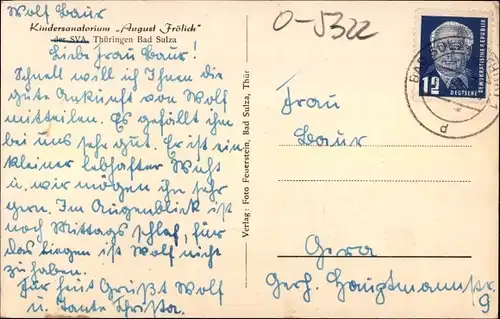 Wolf Baur
Kindersanatorium „August Frölich"
der SVA, Thüringen Bad Sulza
Liebe Frau Baur!
Schnell will ich Ihnen die
gute Ankunft von Wolf
mitteilen. Es gefällt ihm
bei uns sehr gut. Er ist ein
kleiner lebhafter Wuht
u. wir mögen ihn sehr
gern. Im Augenblick ist
noch Mittagsschlaf, für
das liegen ist Wolf nicht
zu haben.
Für heut Grüßt Wolf
u. Tante Christa.
Verlag: Foto Feuerstein, Bad Sulza, Thür
O-5322
12
DEUTSCHE
DEMOKRATISCHE REPUBLIK
BAD
d
Frau
Baur
Gera
Gerh. Hauptmannstr.
9